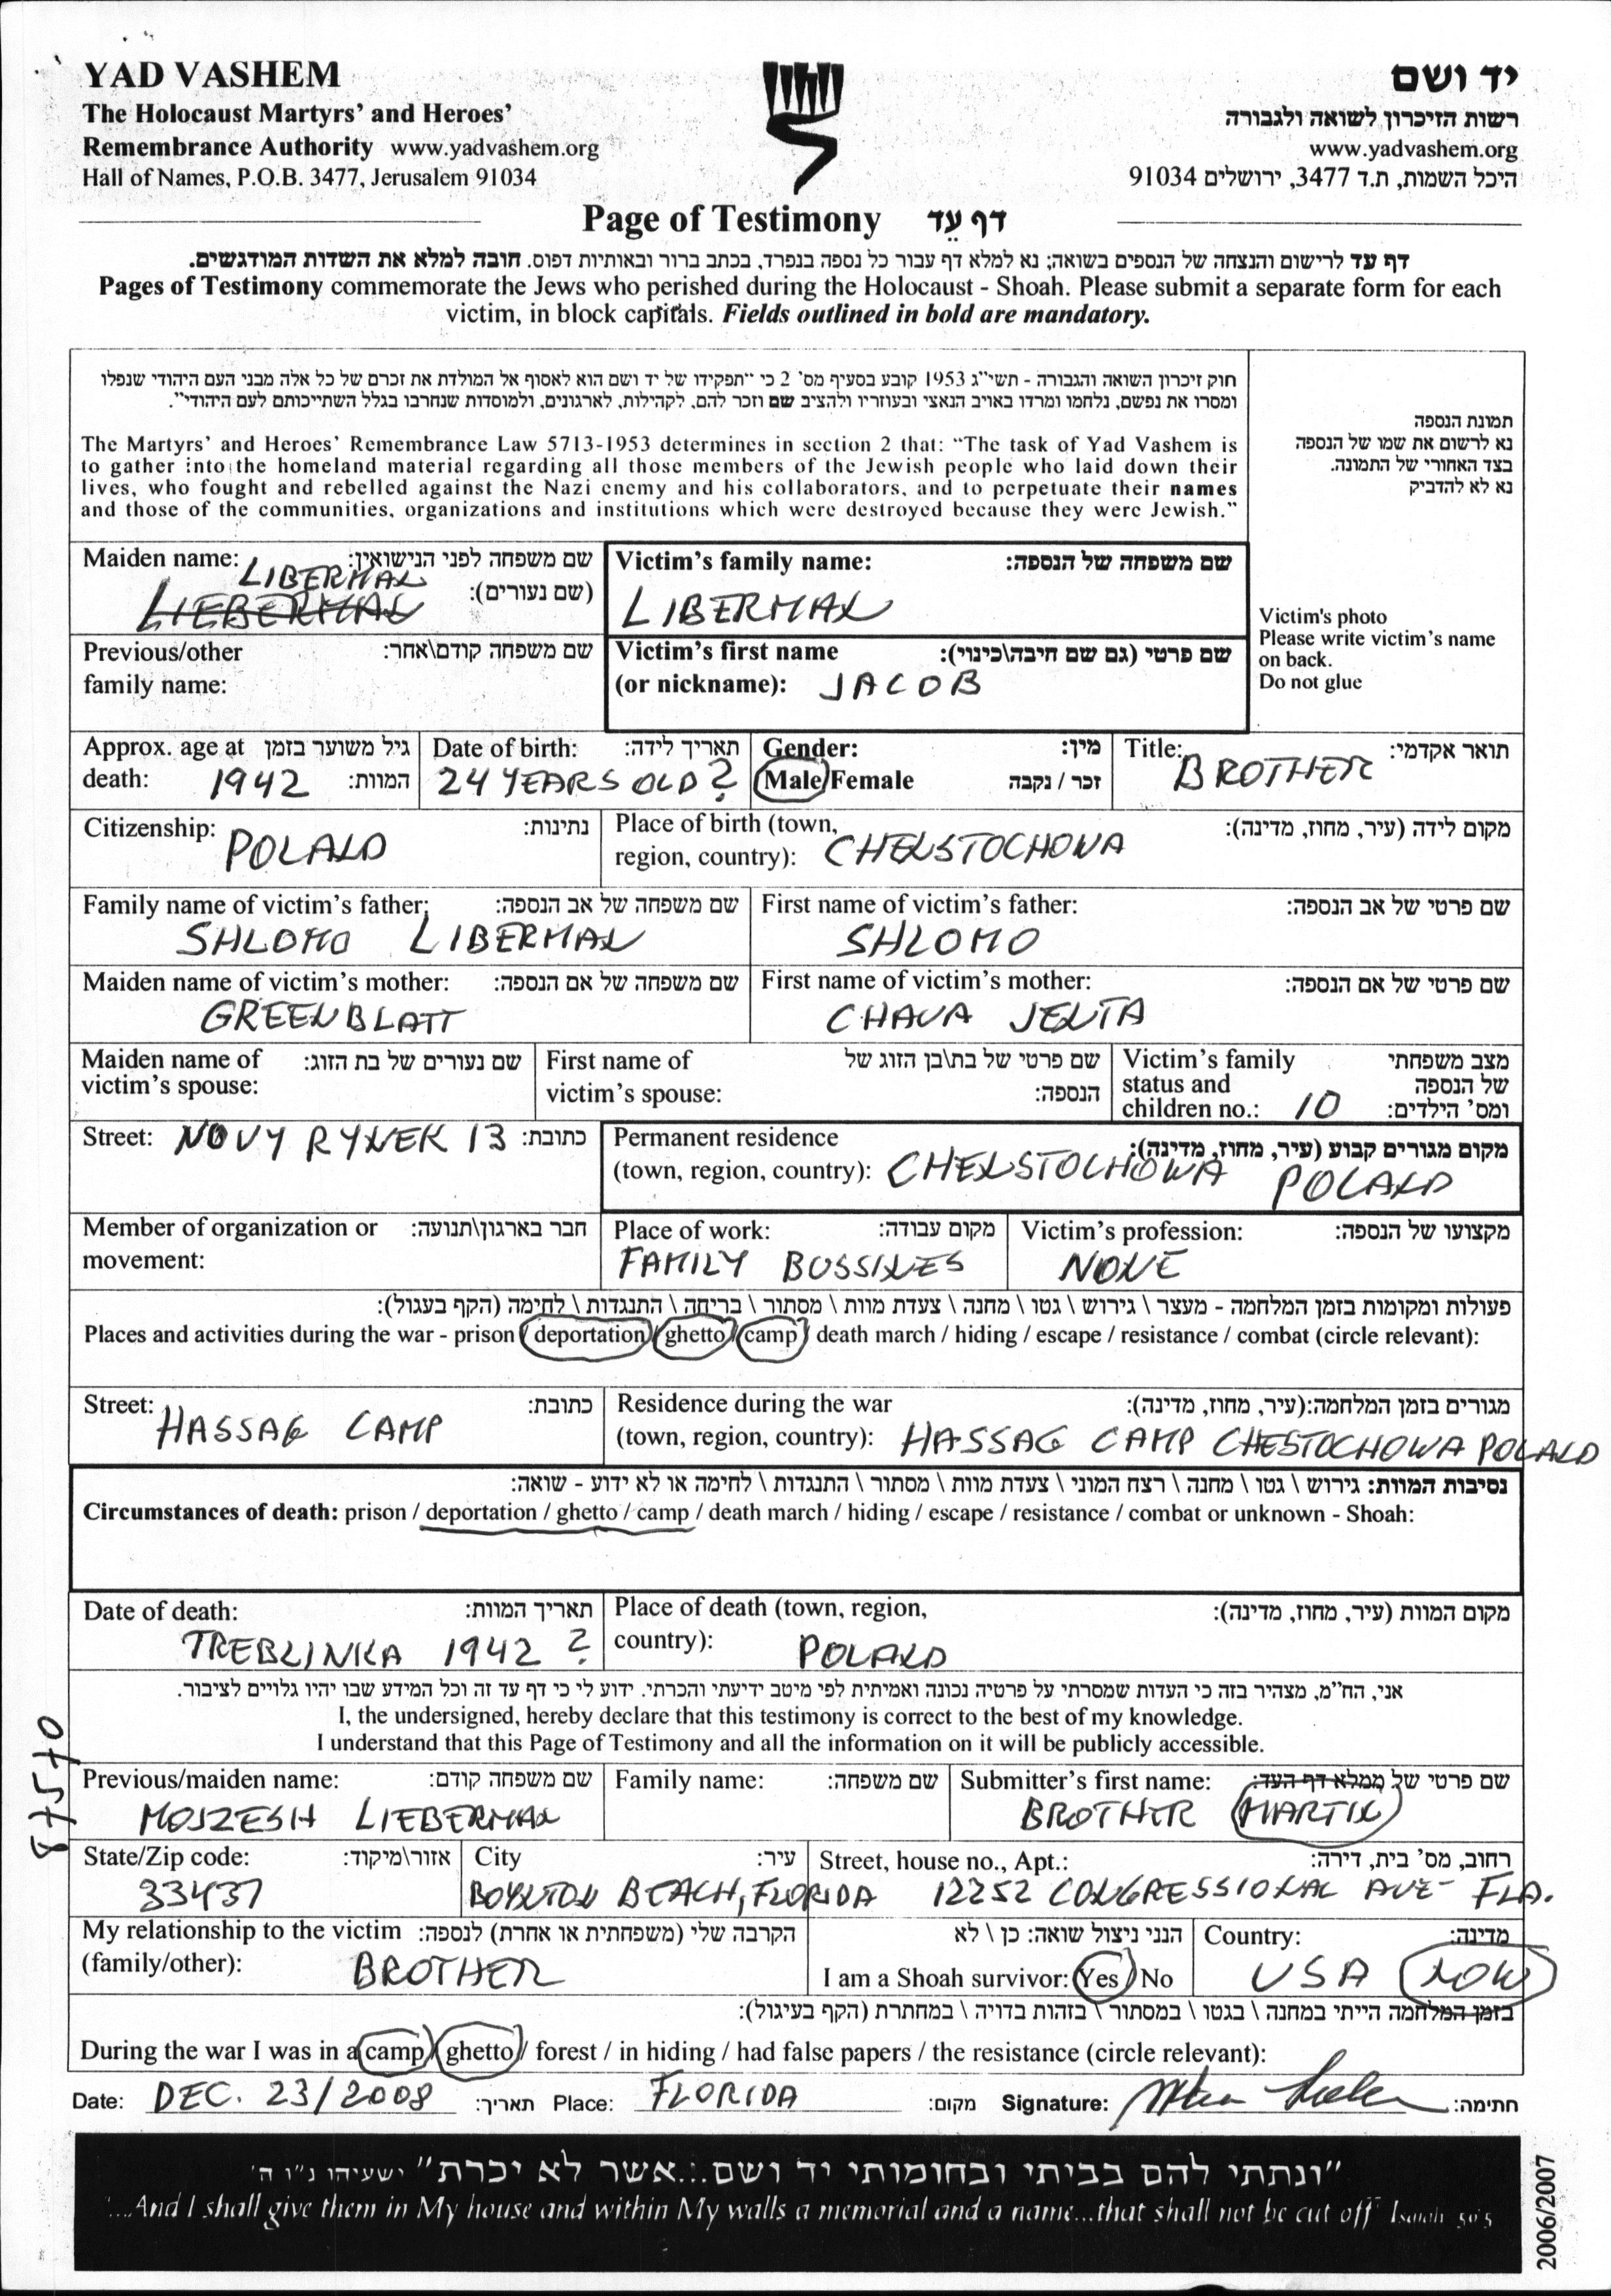 YAD VASHEM
The Holocaust Martyrs' and Heroes'
Remembrance Authority www.yadvashem.org
Hall of Names, P.O.B. 3477, Jerusalem 91034
יד ושם
רשות הזיכרון לשואה ולגבורה
www.yadvashem.org
היכל השמות, ת.ד 3477, ירושלים 91034
Page of Testimony דף עֵד
דף עד לרישום והנצחה של הנספים בשואה; נא למלא דף עבור כל נספה בנפרד, בכתב ברור ובאותיות דפוס. חובה למלא את השדות המודגשים.
Pages of Testimony commemorate the Jews who perished during the Holocaust - Shoah. Please submit a separate form for each
victim, in block capitals. Fields outlined in bold are mandatory.
חוק זיכרון השואה והגבורה - תשי"ג 1953 קובע בסעיף מס' 2 כי "תפקידו של יד ושם הוא לאסוף אל המולדת את זכרם של כל אלה מבני העם היהודי שנפלו
ומסרו את נפשם, נלחמו ומרדו באויב הנאצי ובעוזריו ולהציב שם וזכר להם, לקהילות, לארגונים, ולמוסדות שנחרבו בגלל השתייכותם לעם היהודי".
The Martyrs' and Heroes' Remembrance Law 5713-1953 determines in section 2 that: "The task of Yad Vashem is
to gather into the homeland material regarding all those members of the Jewish people who laid down their
lives, who fought and rebelled against the Nazi enemy and his collaborators, and to perpetuate their names
and those of the communities, organizations and institutions which were destroyed because they were Jewish."
תמונת הנספה
נא לרשום את שמו של הנספה
בצד האחורי של התמונה.
נא לא להדביק
Victim's photo
Please write victim's name
on back.
Do not glue
Maiden name: שם משפחה לפני הנישואין:
(שם נעורים):
LIBERMAN
LIEBERMAN
Victim's family name: שם משפחה של הנספה:
LIBERMAN
Previous/other שם משפחה קודם\אחר:
family name:
Victim's first name שם פרטי (גם שם חיבה\כינוי):
(or nickname): JACOB
Approx. age at גיל משוער בזמן
death: 1942 המוות:
Date of birth: תאריך לידה:
24 YEARS OLD ?
Gender: מין:
Male/Female זכר / נקבה
Title: תואר אקדמי:
BROTHER
Citizenship: נתינות:
POLAND
Place of birth (town, מקום לידה (עיר, מחוז, מדינה):
region, country): CHENSTOCHOWA
Family name of victim's father: שם משפחה של אב הנספה:
SHLOMO LIBERMAN
First name of victim's father: שם פרטי של אב הנספה:
SHLOMO
Maiden name of victim's mother: שם משפחה של אם הנספה:
GREENBLATT
First name of victim's mother: שם פרטי של אם הנספה:
CHAVA JENTA
Maiden name of שם נעורים של בת הזוג:
victim's spouse:
First name of שם פרטי של בת\בן הזוג של
victim's spouse: הנספה:
Victim's family מצב משפחתי
status and של הנספה
children no.: 10 ומס' הילדים:
Street: NOVY RYNEK 13 כתובת:
Permanent residence מקום מגורים קבוע (עיר, מחוז, מדינה):
(town, region, country): CHENSTOCHOWA POLAND
Member of organization or חבר בארגון\תנועה:
movement:
Place of work: מקום עבודה:
FAMILY BUSSINES
Victim's profession: מקצועו של הנספה:
NONE
פעולות ומקומות בזמן המלחמה - מעצר \ גירוש \ גטו \ מחנה \ צעדת מוות \ מסתור \ בריחה \ התנגדות \ לחימה (הקף בעגול):
Places and activities during the war - prison / deportation / ghetto / camp / death march / hiding / escape / resistance / combat (circle relevant):
Street: כתובת:
HASSAG CAMP
Residence during the war מגורים בזמן המלחמה:(עיר, מחוז, מדינה):
(town, region, country): HASSAG CAMP CHESTOCHOWA POLAND
נסיבות המוות: גירוש \ גטו \ מחנה \ רצח המוני \ צעדת מוות \ מסתור \ התנגדות \ לחימה או לא ידוע - שואה:
Circumstances of death: prison / deportation / ghetto / camp / death march / hiding / escape / resistance / combat or unknown - Shoah:
Date of death: תאריך המוות:
TREBLINKA 1942 ?
Place of death (town, region, מקום המוות (עיר, מחוז, מדינה):
country): POLAND
אני, הח"מ, מצהיר בזה כי העדות שמסרתי על פרטיה נכונה ואמיתית לפי מיטב ידיעתי והכרתי. ידוע לי כי דף עד זה וכל המידע שבו יהיו גלויים לציבור.
I, the undersigned, hereby declare that this testimony is correct to the best of my knowledge.
I understand that this Page of Testimony and all the information on it will be publicly accessible.
87570
Previous/maiden name: שם משפחה קודם:
MOJZESH LIEBERMAN
Family name: שם משפחה:
Submitter's first name: שם פרטי של ממלא דף העד:
BROTHER MARTIN
State/Zip code: אזור\מיקוד:
33437
City עיר:
BOYNTON BEACH, FLORIDA
Street, house no., Apt.: רחוב, מס' בית, דירה:
12252 CONGRESSIONAL AVE- FLA.
My relationship to the victim הקרבה שלי (משפחתית או אחרת) לנספה:
(family/other): BROTHER
הנני ניצול שואה: כן \ לא
I am a Shoah survivor: Yes / No
Country: מדינה:
USA NOW
בזמן המלחמה הייתי במחנה \ בגטו \ במסתור \ בזהות בדויה \ במחתרת (הקף בעיגול):
During the war I was in a camp / ghetto / forest / in hiding / had false papers / the resistance (circle relevant):
Date: DEC. 23/2008 תאריך: Place: FLORIDA מקום: Signature: חתימה:
"ונתתי להם בביתי ובחומותי יד ושם...אשר לא יכרת" ישעיהו נ"ו ה'
"...And I shall give them in My house and within My walls a memorial and a name...that shall not be cut off" Isaiah 56:5
2006/2007